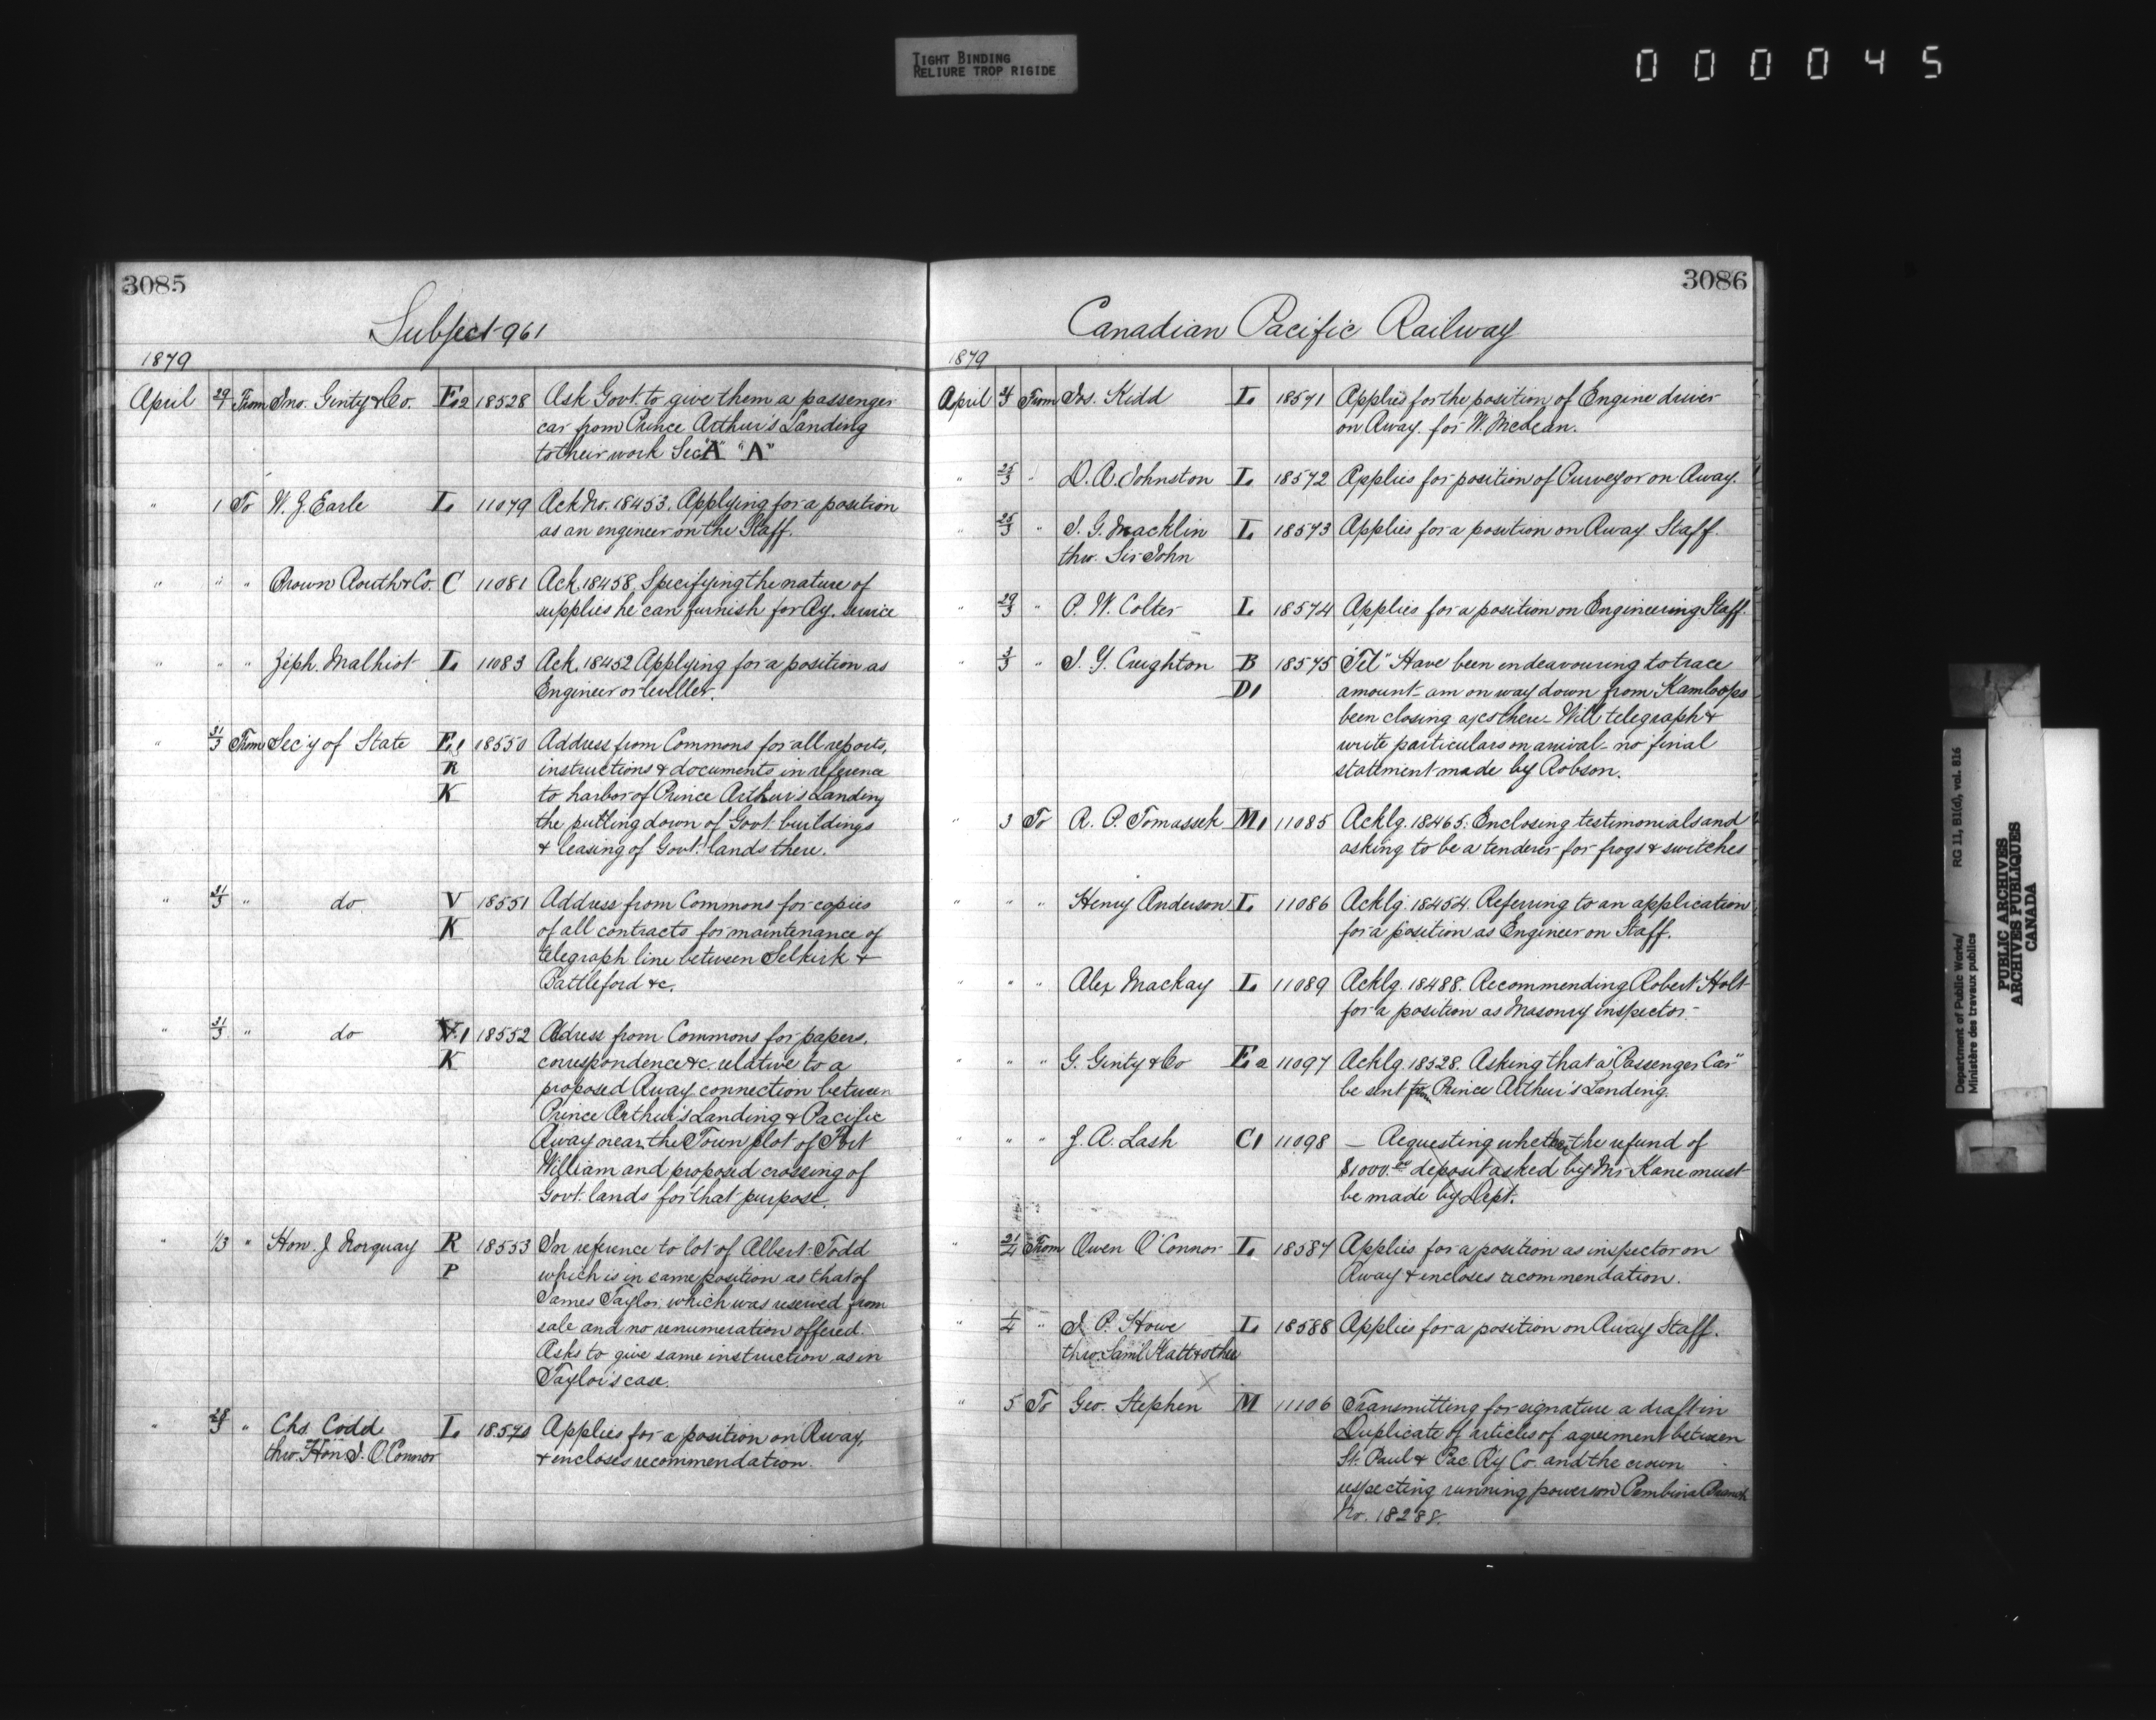 TIGHT BINDING
RELIURE TROP RIGIDE
000045
3085
Subject 961
1879
April 29/ From Jno. Ginty & Co. E2 18528 Ask Govt. to give them a passenger
car from Prince Arthur's Landing
to their work Sec "A" "A"
" 1 To W. J. Earle L 11079 Ack No. 18453. Applying for a position
as an engineer on the Staff.
" " " Brown Routh & Co. C 11081 Ack. 18458. Specifying the nature of
supplies he can furnish for Ry. service
" " " Zeph. Malhiot L 11083 Ack. 18452 Applying for a position as
Engineer or leveller.
" 31/3 From Sec'y of State E1 18550 Address from Commons for all reports,
R instructions & documents in reference
K to harbor of Prince Arthur's Landing
the putting down of Govt. buildings
& leasing of Govt. lands there.
" 31/3 " do V 18551 Address from Commons for copies
K of all contracts for maintenance of
telegraph line between Selkirk &
Battleford &c.
" 31/3 " do V.1 18552 Adress from Commons for papers,
K correspondence &c. relative to a
proposed Rway connection between
Prince Arthur's Landing & Pacific
Rway near the Town plot of Fort
William and proposed crossing of
Govt. lands for that purpose.
" 1/3 " Hon. J Norquay R 18553 In reference to lot of Albert Todd
P which is in same position as that of
James Taylor, which was reserved from
sale and no renumeration offered.
Asks to give same instruction as in
Taylor's case.
" 28/3 " Chs. Codd L 18570 Applies for a position on Rway,
thro. Hon J. O'Connor & encloses recommendation.
3086
Canadian Pacific Railway
1879
April From Jos. Kidd L 18571 Applies for the position of Engine driver
on Rway. for W. McLean.
" 25/3 " D. A. Johnston L 18572 Applies for position of Purveyor on Rway.
" 25/3 " J. G. Macklin L 18573 Applies for a position on Rway Staff.
thro. Sir John
" 29/3 " P. W. Colter L 18574 Applies for a position on Engineering Staff.
" 3/3 " J. Y. Creighton B 18575 "Tel" Have been endeavouring to trace
D1 amount - am on way down from Kamloops
been closing a/cs there - Will telegraph &
write particulars on arrival - no final
statement made by Robson.
" 3 To R. P. Tomassek M1 11085 Acklg. 18465. Enclosing testimonials and
asking to be a tenderer for frogs & switches
" " " Henry Anderson L 11086 Acklg. 18454. Referring to an application
for a position as Engineer on Staff.
" " " Alex Mackay L 11089 Acklg. 18488. Recommending Robert Holt
for a position as Masonry inspector.
" " " G. Ginty & Co E2 11097 Acklg. 18528. Asking that a "Passenger Car"
be sent from Prince Arthur's Landing.
" " " J. A. Lash C1 11098 — Requesting whether the refund of
$1000.00 deposit asked by Mr Kane must
be made by Dept.
" From Owen O'Connor L 18587 Applies for a position as inspector on
Rway & encloses recommendation.
" 1/4 " J. P. Howe L 18588 Applies for a position on Rway Staff.
thro. Saml Platt & other
" 5 To Geo. Stephen M 11106 Transmitting for signature a draft in
Duplicate of articles of agreement between
St. Paul & Pac. Ry Co. and the crown
respecting running powers on Pembina Branch
No. 18288.
Department of Public Works/ RG 11, B1(d), vol. 816
Ministère des travaux publics
PUBLIC ARCHIVES
ARCHIVES PUBLIQUES
CANADA